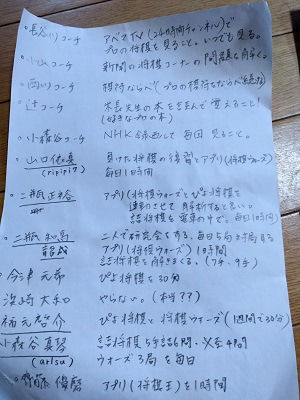 。長谷川コーチ アベマTV(24時間チャンネル)で
プロの将棋を見ること。いつでも見る。
。小山コーチ 新聞の将棋コーナーの問題を解く。
コーチ 棋譜ならべ(プロの棋譜をならべ
。辻コーチ 先生の本を読んで覚えること!
(好きなプロの本)
。小森谷コーチ NHK録画して毎回見ること。
。山口 負けた将棋の復習とアプリ(将棋ウォーズ)
(ripip17) 毎日1時間
。二瓶正裕 アプリ(将棋ウォーズとぴよ将棋を
連動させて解析すると良い。
詰将棋を電車の中で。毎日1時間)
。二瓶和馬 二人で研究会をする。毎日5局対局する
アプリ(将棋ウォーズ)1時間
詰将棋を解きまくる。(7手、9手)
。今津元希 ぴよ将棋を30分
濱崎大和 やらない。(本当??)
福元啓介 ぴよ将棋と将棋ウォーズ(1週間で30分)
小森谷真琴 詰将棋5手詰6問、必至4問
(arisu) ウォーズ3局を毎日
。齊藤優磨 アプリ(将棋王)を1時間